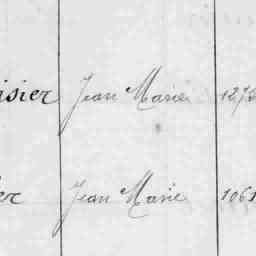 isier Jean Marie 127
er Jean Marie 1061